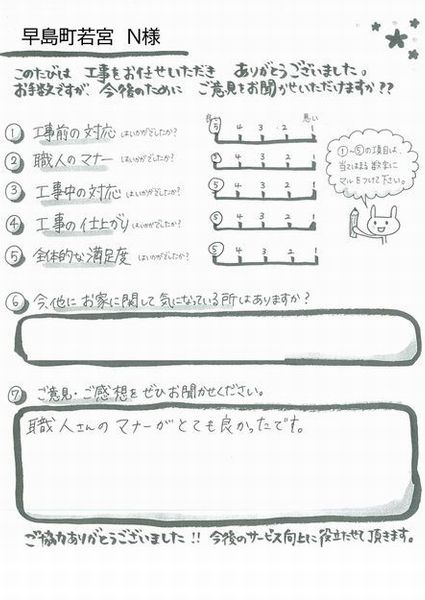 早島町若宮 N様
このたびは 工事をお任せいただき ありがとうございました。
お手数ですが、今後のために ご意見をお聞かせいただけますか??
良い 悪い
① 工事前の対応 はいかがでしたか? 5 4 3 2 1
② 職人のマナー はいかがでしたか? 5 4 3 2 1
③ 工事中の対応 はいかがでしたか? 5 4 3 2 1
④ 工事の仕上がり はいかがでしたか? 5 4 3 2 1
⑤ 全体的な満足度 はいかがでしたか? 5 4 3 2 1
①~⑤の項目は、
当てはまる数字に
マルをつけて下さい。
⑥ 今、他に お家に関して 気になっている所はありますか?
⑦ ご意見・ご感想をぜひお聞かせください。
職人さんのマナーがとても良かったです。
ご協力ありがとうございました!! 今後のサービス向上に役立たせて頂きます。